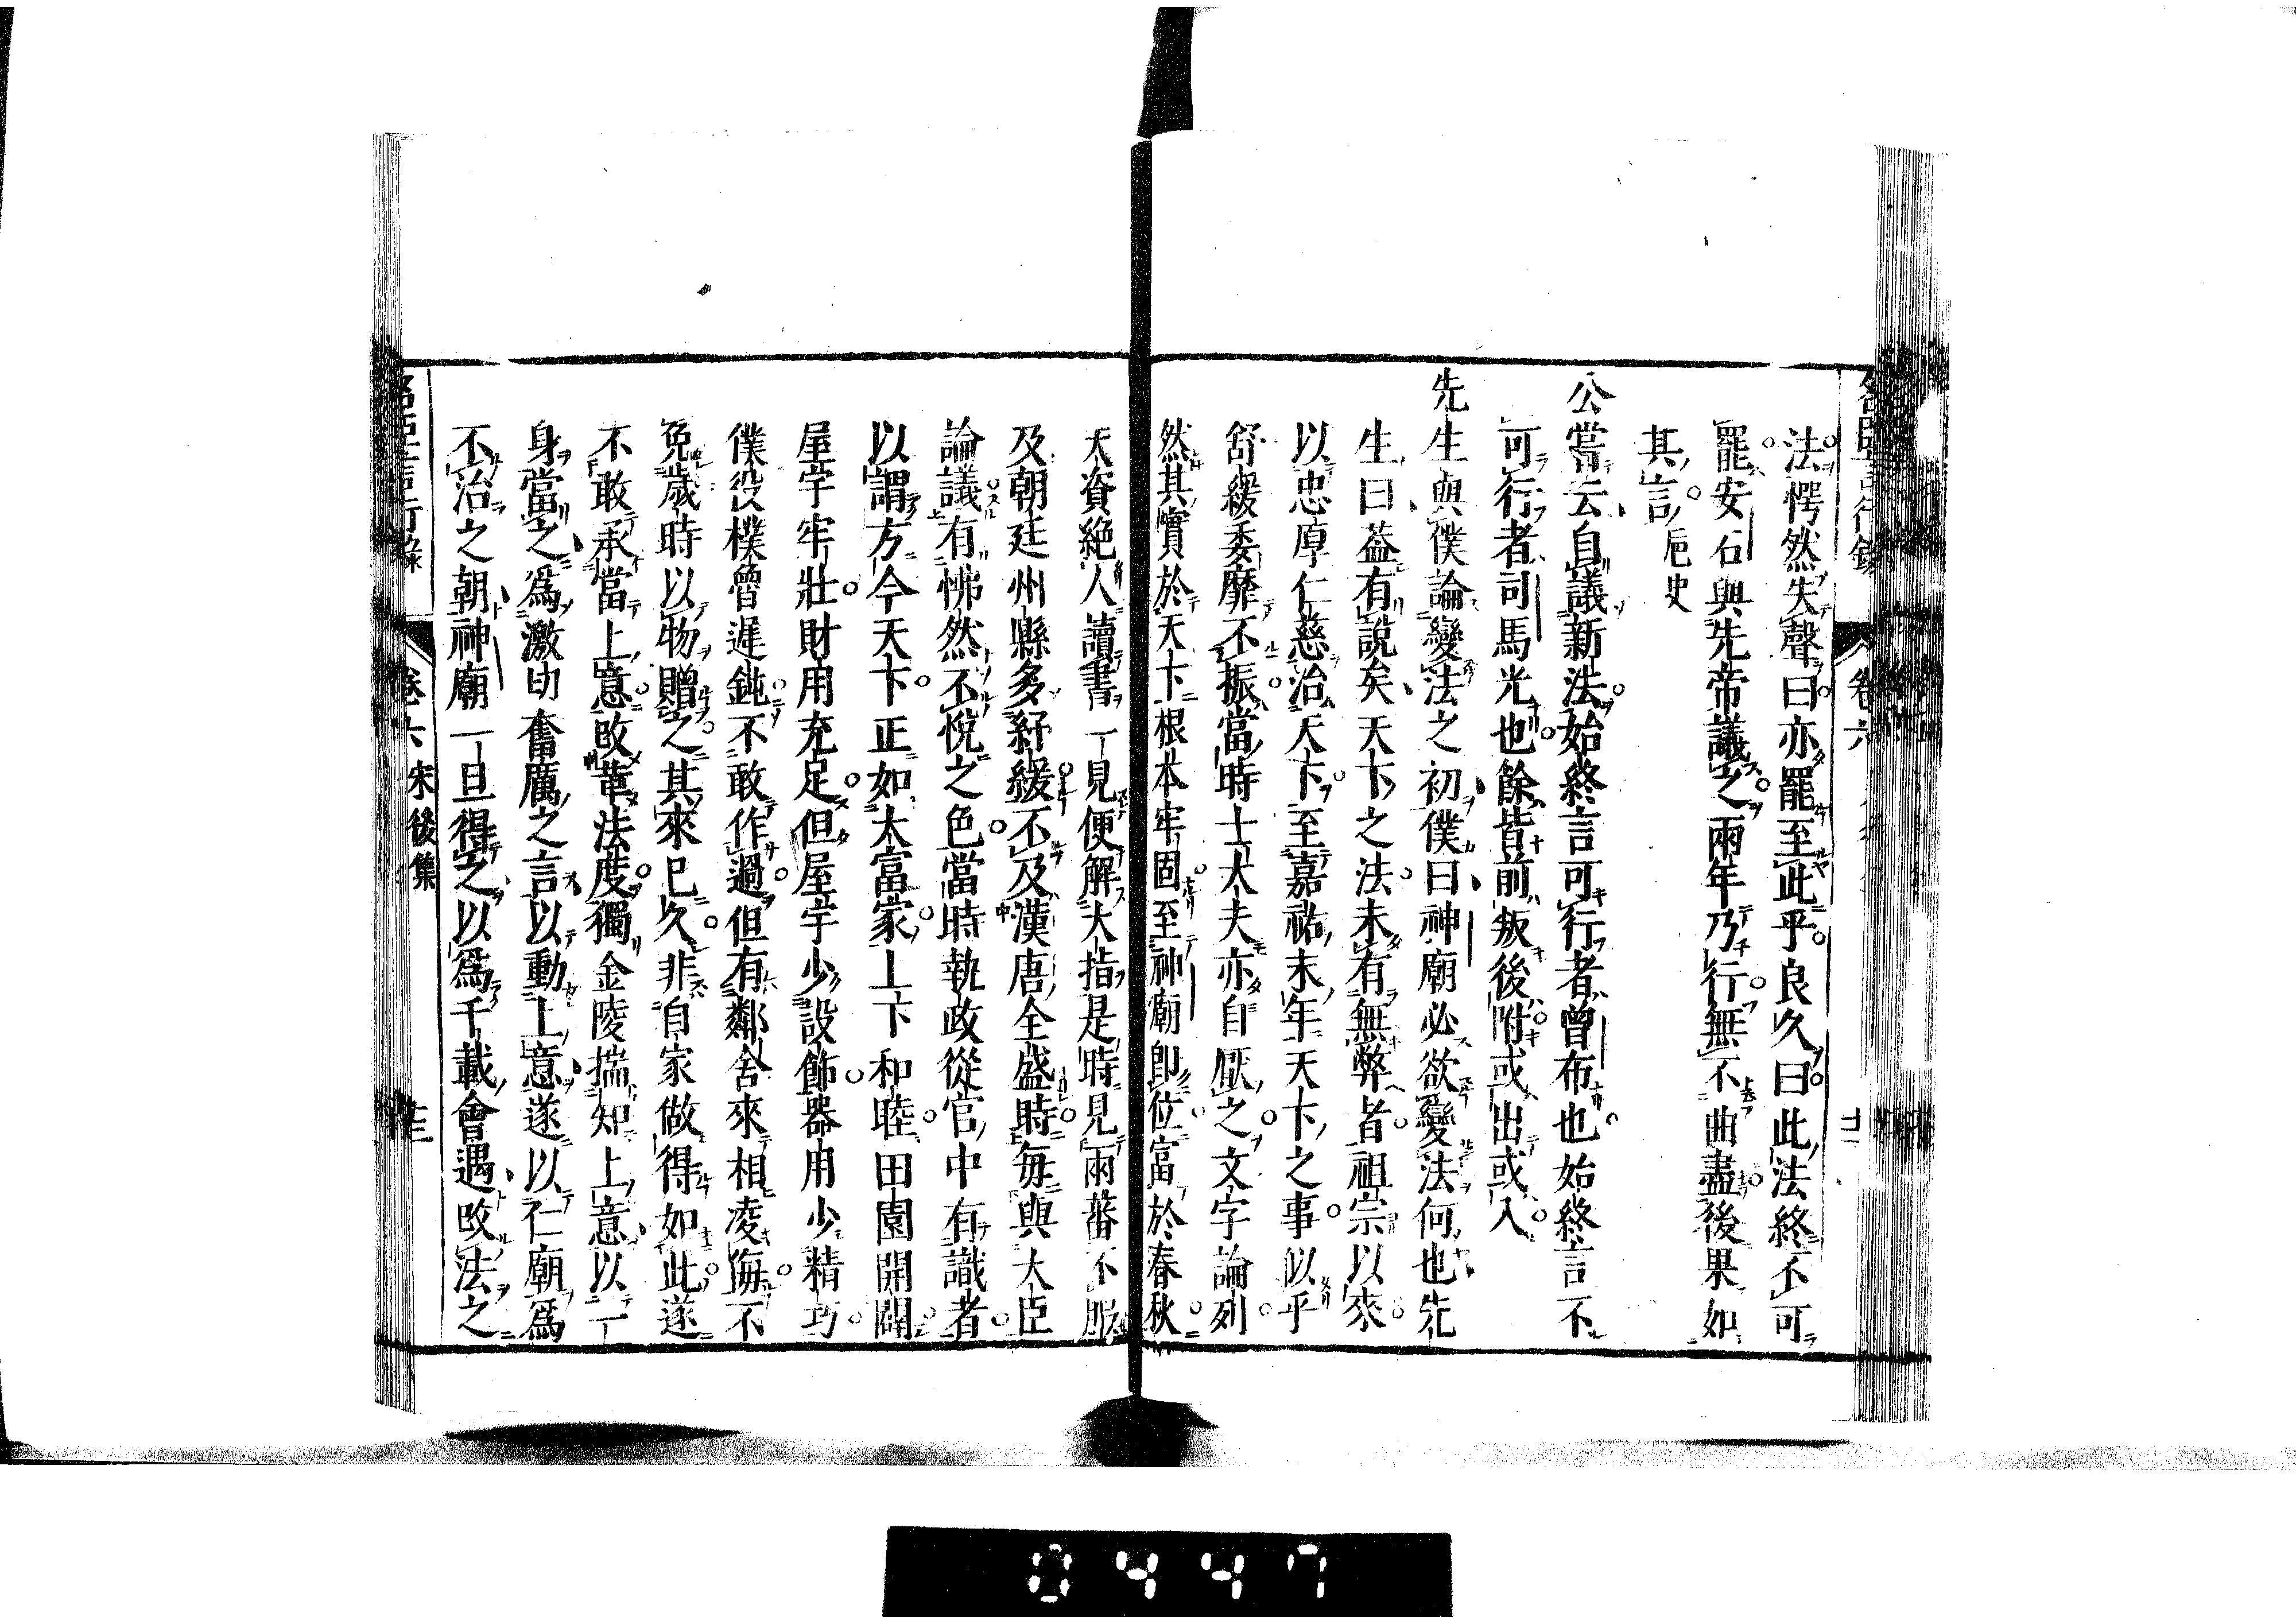 法愕然失聲曰亦罷至此乎良久曰此法終不可
罷安石與先帝議之兩年乃行無不曲盡後果如
其言巵史
公嘗云自議新法始終言可行者曾布也始終言不
可行者司馬光也餘皆前叛後附或出或入
先生與僕論變法之初僕曰神廟必欲變法何也先
生曰葢有說矣天下之法未有無弊者祖宗以來
以忠厚仁慈治天下至嘉祐末年天下之事似乎
舒緩委靡不振當時士大夫亦自厭之文字論列
然其實於天下根本牢固至神廟卽位富於春秋
天資絶人讀書一見便解大指是時見兩蕃不服
及朝廷州縣多紓緩不及漢唐全盛時每與大臣
論議有怫然不悅之色當時執政從官中有識者
以謂方今天下正如大富家上下和睦田園開闢
屋宇牢壯財用充足但屋宇少設飾器用少精巧
僕役樸魯遲鈍不敢作過但有鄰舍來相凌侮不
免歲時以物贈之其來已久非自家做得如此遂
不敢承當上意改革法度獨金陵揣知上意以一
身當之爲激切奮厲之言以動上意遂以仁廟爲
不治之朝神廟一旦得之以爲千載會遇改法之
名臣言行錄 卷六 宋後集 十三
0447